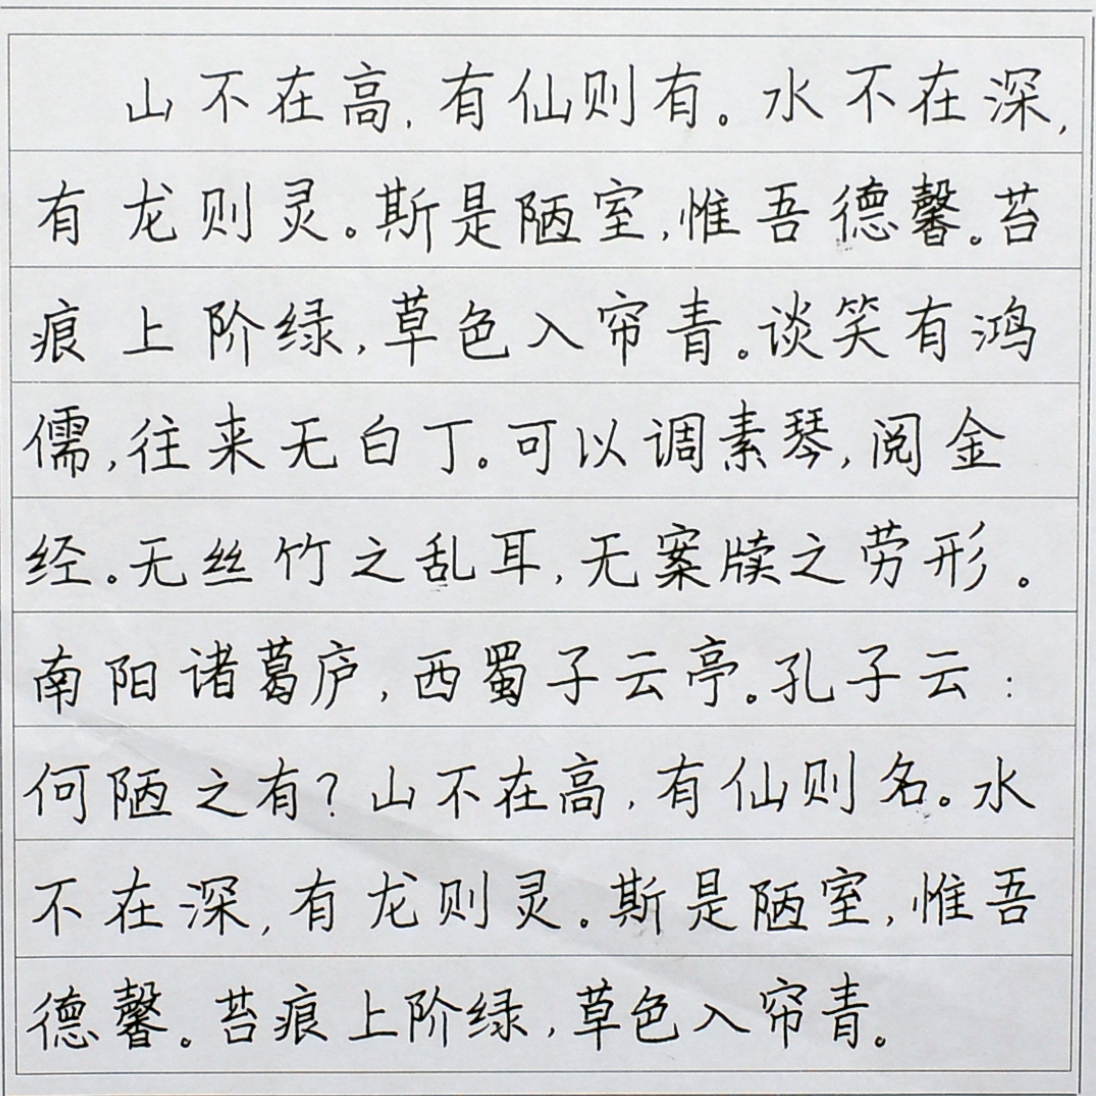 山不在高,有仙则有。水不在深,
有龙则灵。斯是陋室,惟吾德馨。苔
痕上阶绿,草色入帘青。谈笑有鸿
儒,往来无白丁。可以调素琴,阅金
经。无丝竹之乱耳,无案牍之劳形。
南阳诸葛庐,西蜀子云亭。孔子云:
何陋之有?山不在高,有仙则名。水
不在深,有龙则灵。斯是陋室,惟吾
德馨。苔痕上阶绿,草色入帘青。